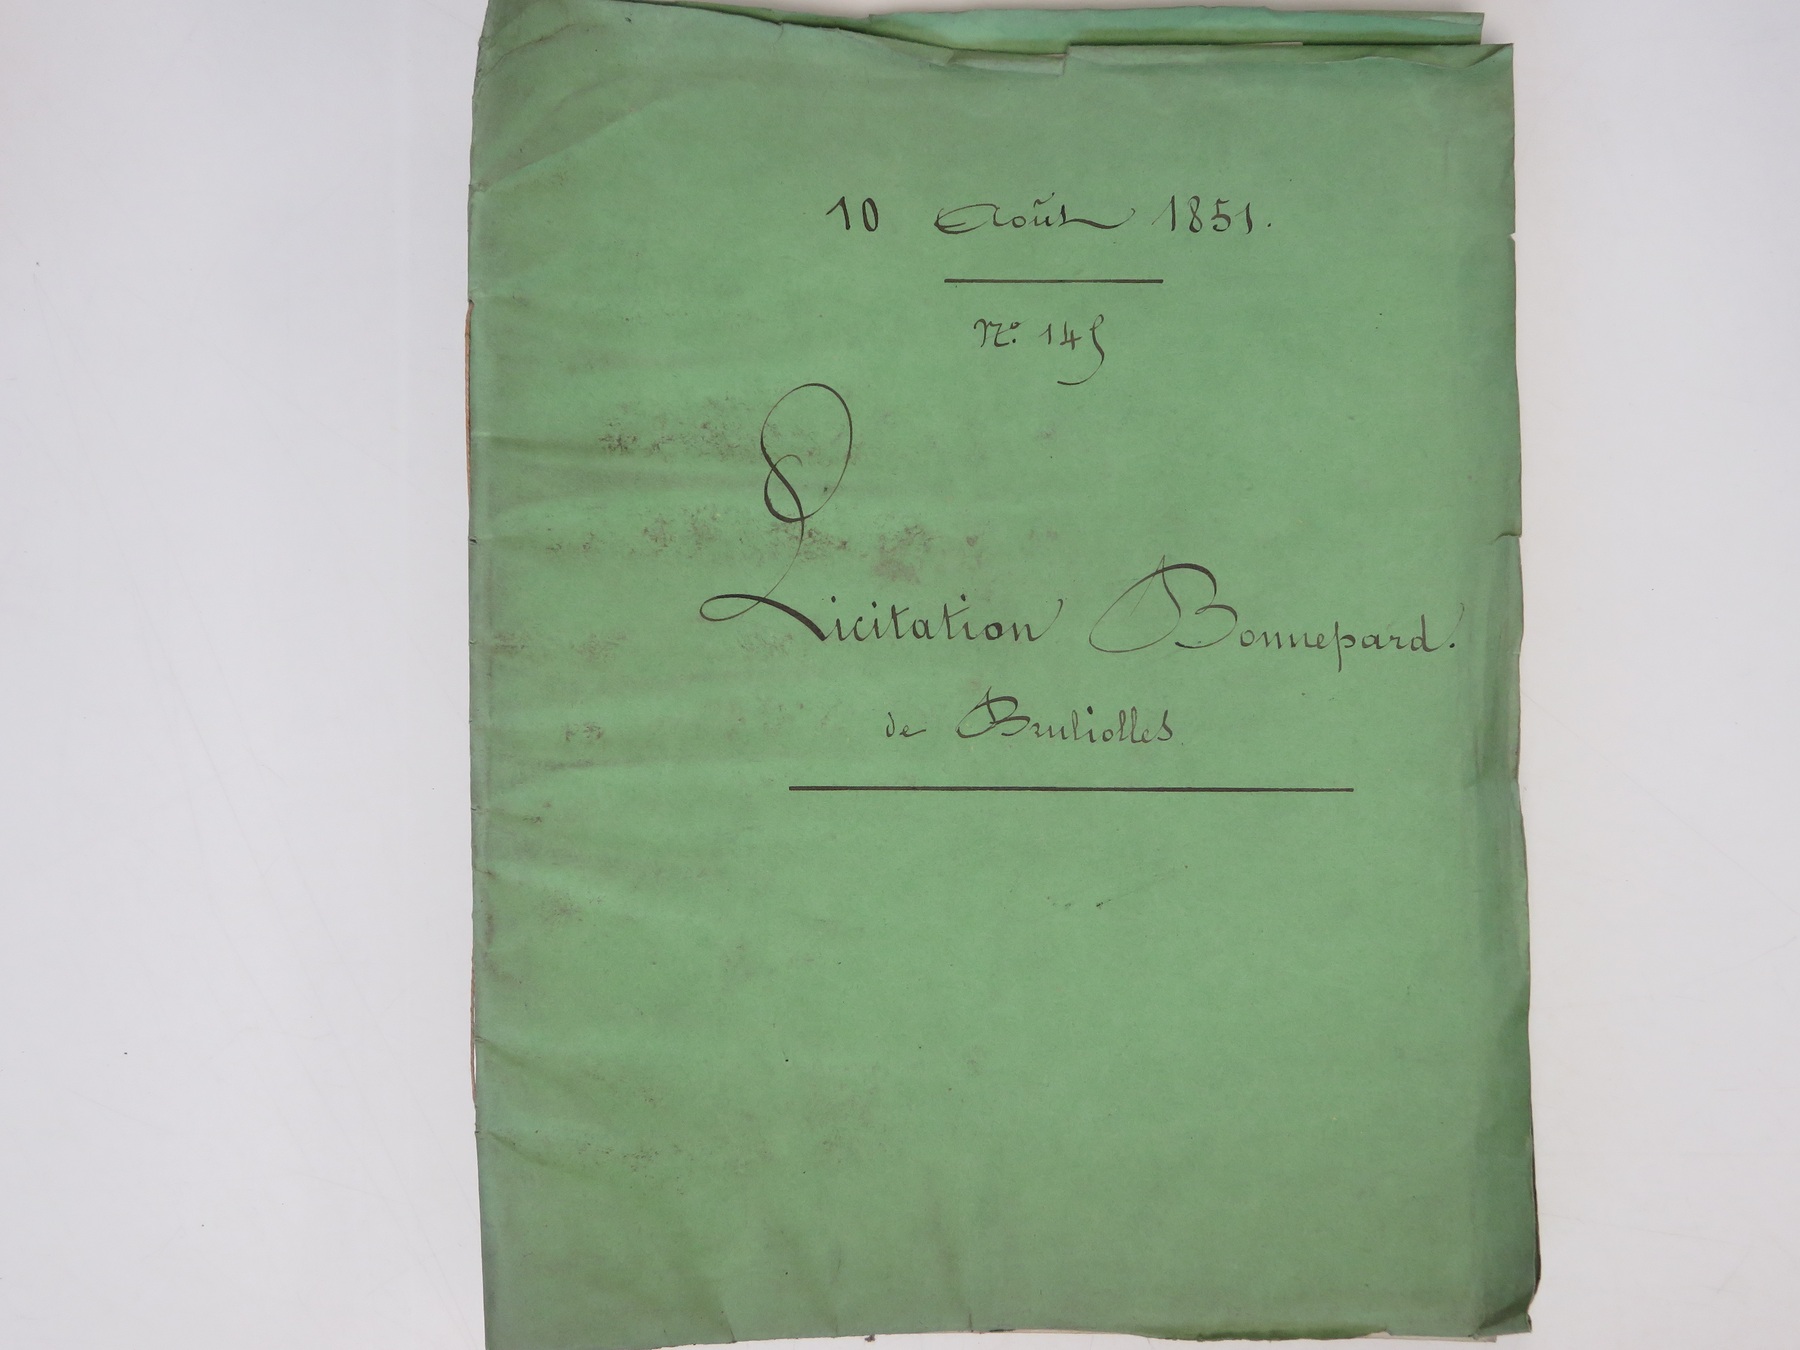 10 Août 1851.
N.° 145
Licitation Bonnepard.
de Bruliolles